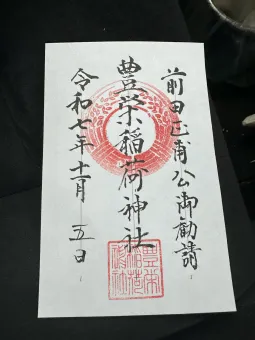 前田正甫公御勧請
豊栄稲荷神社
令和七年十一月五日
豊栄稲荷神社